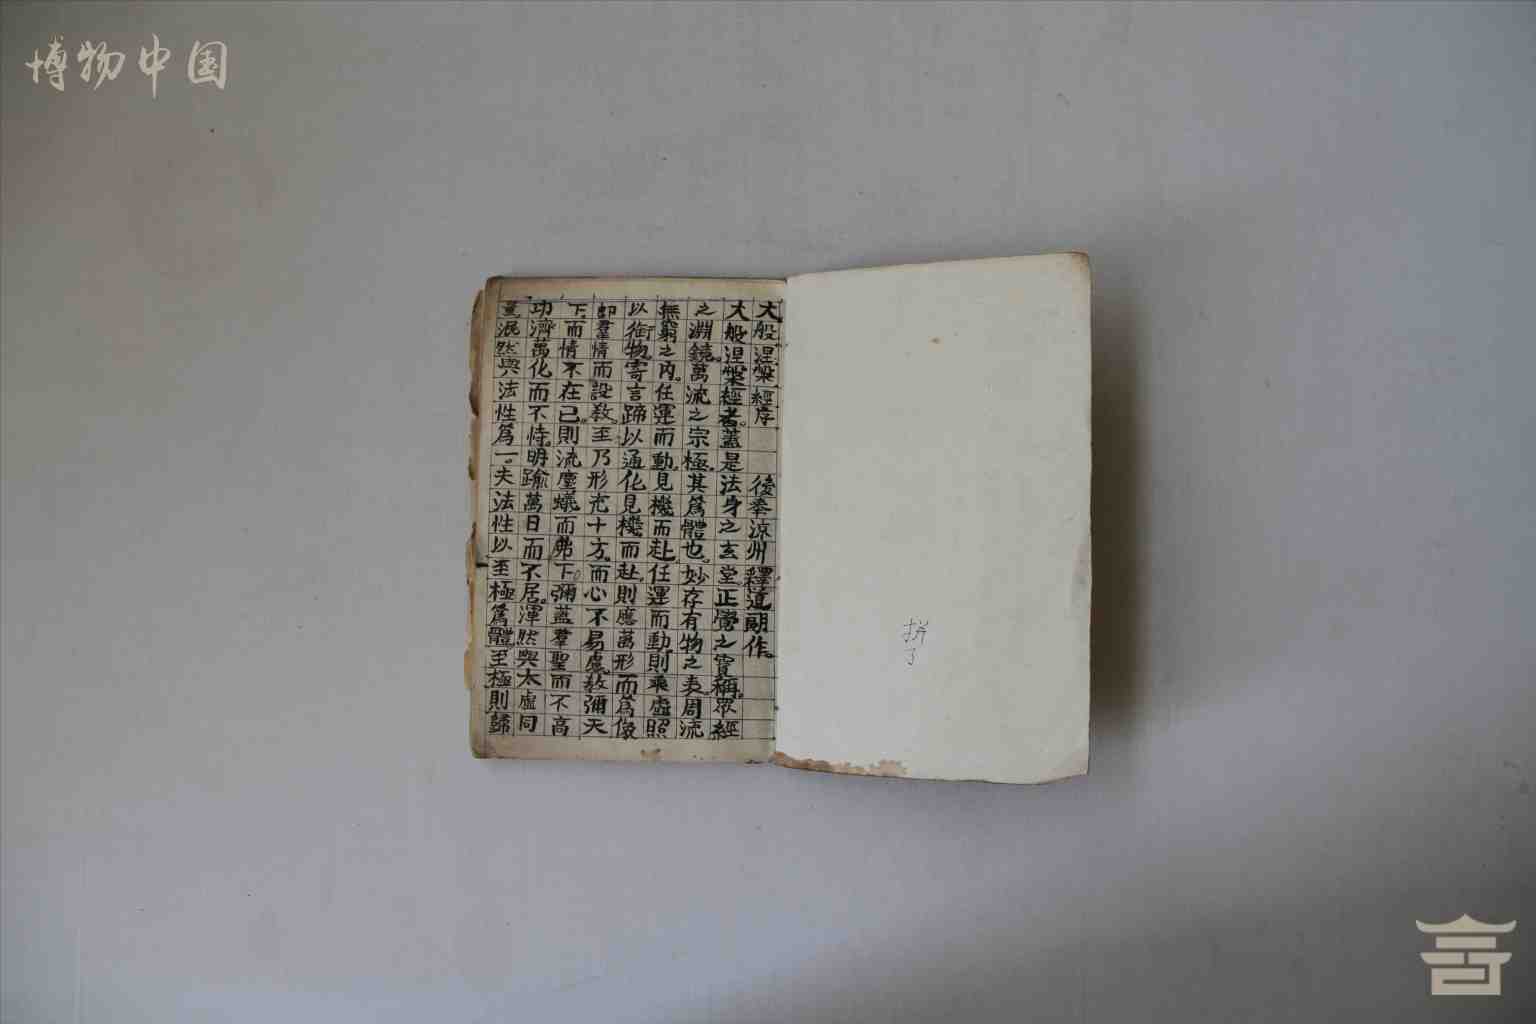 博物中国
拼了
大般涅槃經序 後秦涼州釋道朗作。
大般涅槃經者。蓋是法身之玄堂。正覺之實稱。眾經
之淵鏡。萬流之宗極。其爲體也。妙存有物之表。周流
無窮之內。任運而動。見機而赴。任運而動。則乘虛照
以御物。寄言蹄以通化。見機而赴。則應萬形而爲像
即羣情而設教。至乃形充十方。而心不易慮。教彌天
下。而情不在己。則流塵蟻而弗下。彌蓋羣聖而不高
功濟萬化而不恃。明踰萬日而不居。渾然與太虛同
量。泯然與法性爲一。夫法性以至極爲體。至極則歸